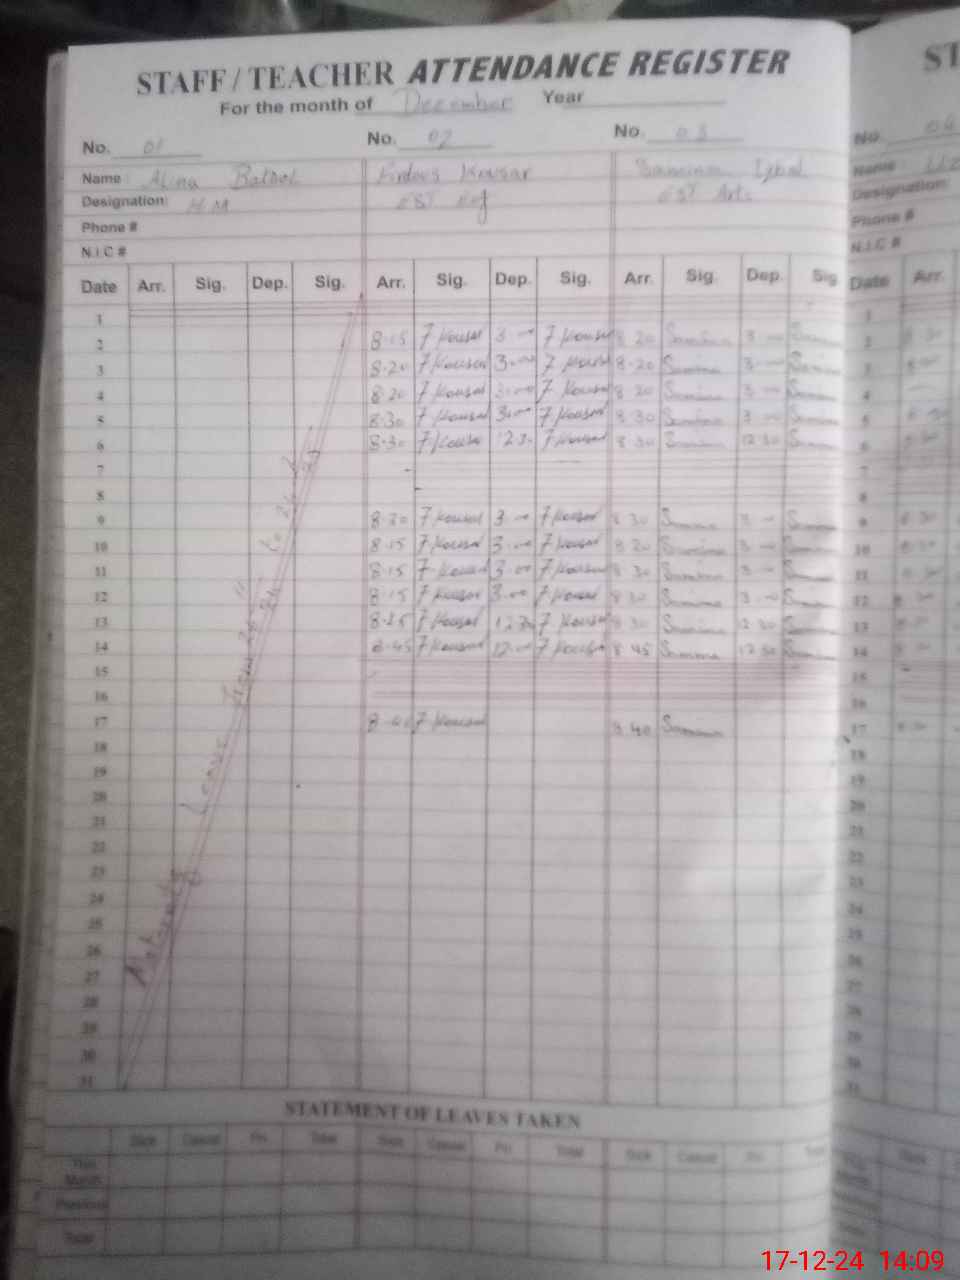 STAFF / TEACHER ATTENDANCE REGISTER
For the month of December Year
No. 01 No. 02 No. 03
Name : Alina Batool Firdous Kousar Samina Iqbal
Designation: H M EST EST Arts
Phone #
N.I.C #
Date Arr. Sig. Dep. Sig. Arr. Sig. Dep. Sig. Arr. Sig. Dep. Sig
1
2 8-15 F Kousar 3-00 F Kousar 8 20 Samina 3-00 Samina
3 8-20 F Kousar 3-00 F Kousar 8-20 Samina 3-00 Samina
4 8-20 F Kousar 3-00 F Kousar 8 20 Samina 3-00 Samina
5 8-30 F Kousar 3-00 F Kousar 8 30 Samina 3-00 Samina
6 8-30 F Kousar 12-30 F Kousar 8 30 Samina 12 30 Samina
7
8
9 F Kousar 3-00 F Kousar 8 30 Samina 3-00 Samina
10 8-15 F Kousar 3-00 F Kousar Samina 3-00 Samina
11 8-15 F Kousar 3-00 F Kousar 8 30 Samina 3-00 Samina
12 8-15 F Kousar 3-00 F Kousar 8 30 Samina 3-00 Samina
13 F Kousar 12-30 F Kousar 8 30 Samina 12 30 Samina
14 8-45 F Kousar F Kousar 8 45 Samina 12 30 Samina
15
16
17 8-40 F Kousar 8 40 Samina
18
19
20
21
22
23
24
25
26
27
28
29
30
31
Maternity Leave from to
STATEMENT OF LEAVES TAKEN
Sick Casual Pri Total Sick Casual Pri Total Sick Casual Pri Total
This Month
Previous
Total
ST
No. 04
Name
Designation
Phone #
N.I.C #
Date Arr.
1
2
3
4
5
6
7
8
9
10
11
12
13
14
15
16
17
18
19
20
21
22
23
24
25
26
27
28
29
30
31
17-12-24 14:09